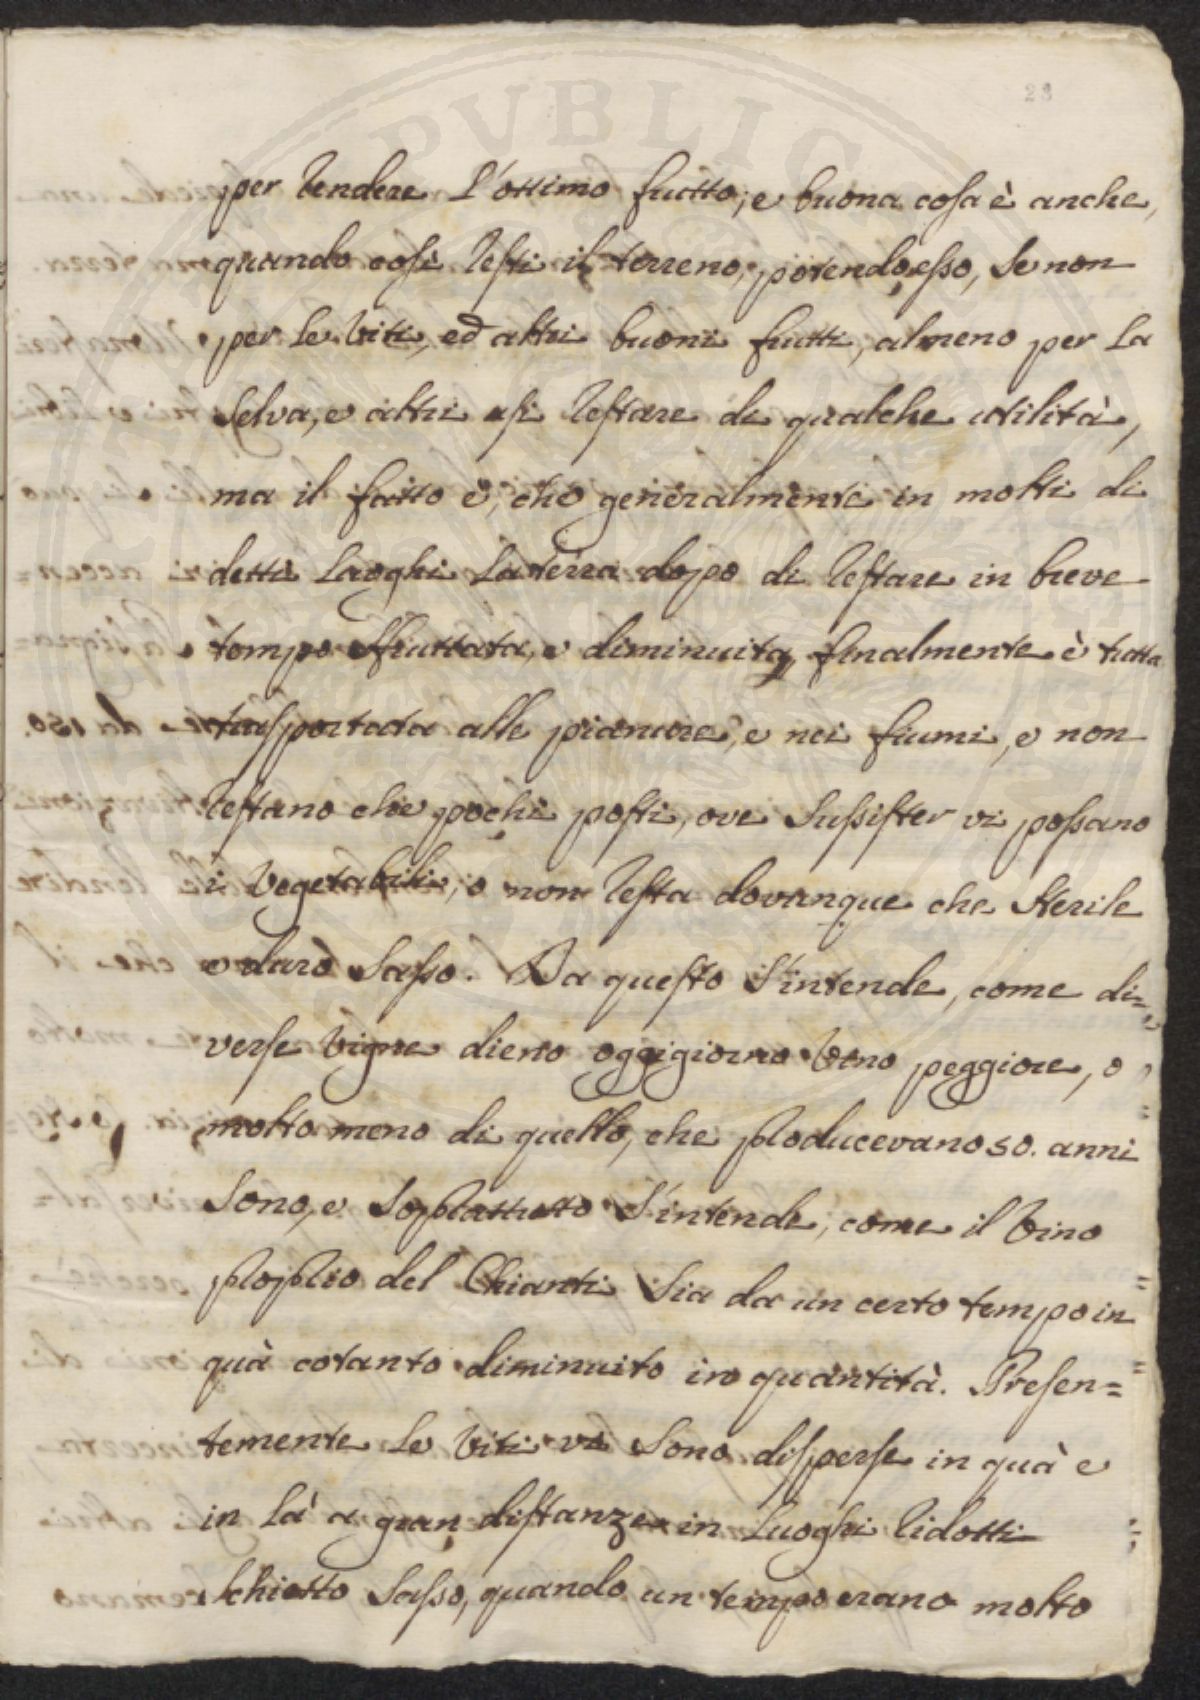 23
per rendere l'ottimo frutto; e buona cosa è anche,
quando così resti il terreno, potendo esso, se non
per le viti, ed altri buoni frutti, almeno per la
selva, e altri usi restare di qualche utilità,
ma il fatto è, che generalmente in molti di
detti luoghi la terra dopo di restare in breve
tempo sfruttata, e diminuita, finalmente è tutta
trasportata alle pianure, e nei fiumi, e non
restano che pochi posti, ove sussister vi possano
i vegetabili, e non resta dovunque che sterile
e duro sasso. Da questo s'intende, come di=
verse vigne dieno oggigiorno vino peggiore, o
molto meno di quello, che producevano 50. anni
sono, e soprattutto s'intende, come il vino
proprio del Chianti sia da un certo tempo in
quà cotanto diminuito in quantità. Presen=
temente le viti vi sono disperse in quà e
in là a gran distanze in luoghi ridotti
schietto sasso, quando un tempo erano molto